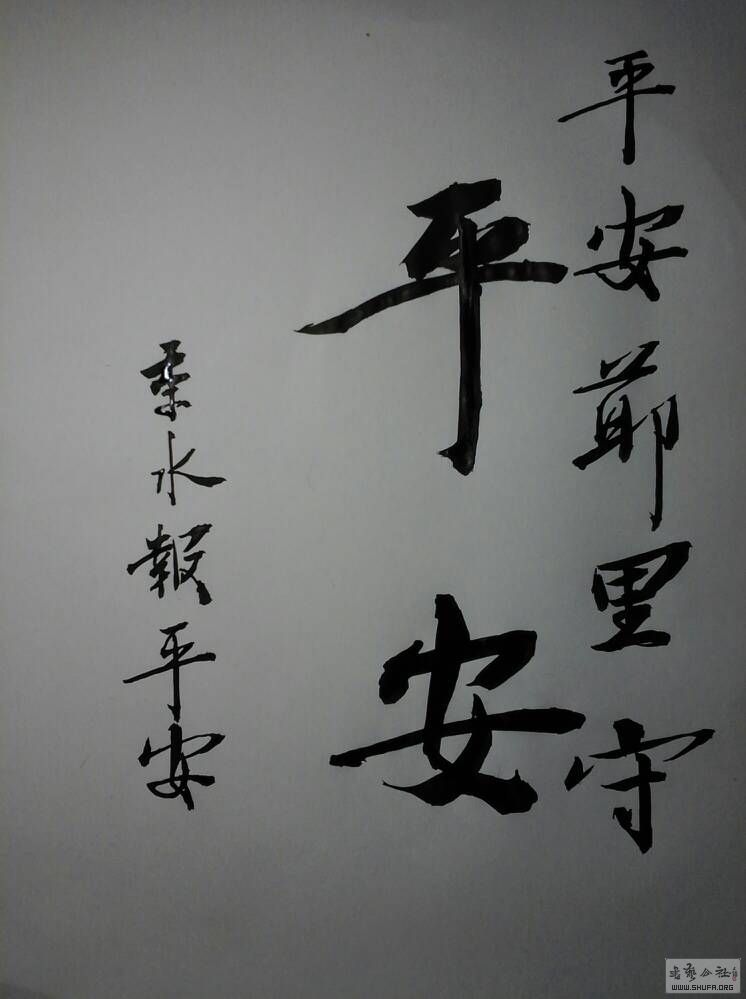 平安節里守
平安
水報平安
書藝公社
WWW.SHUFA.ORG